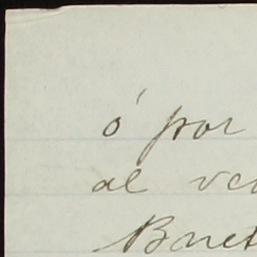 ó por
al ve
Bonet